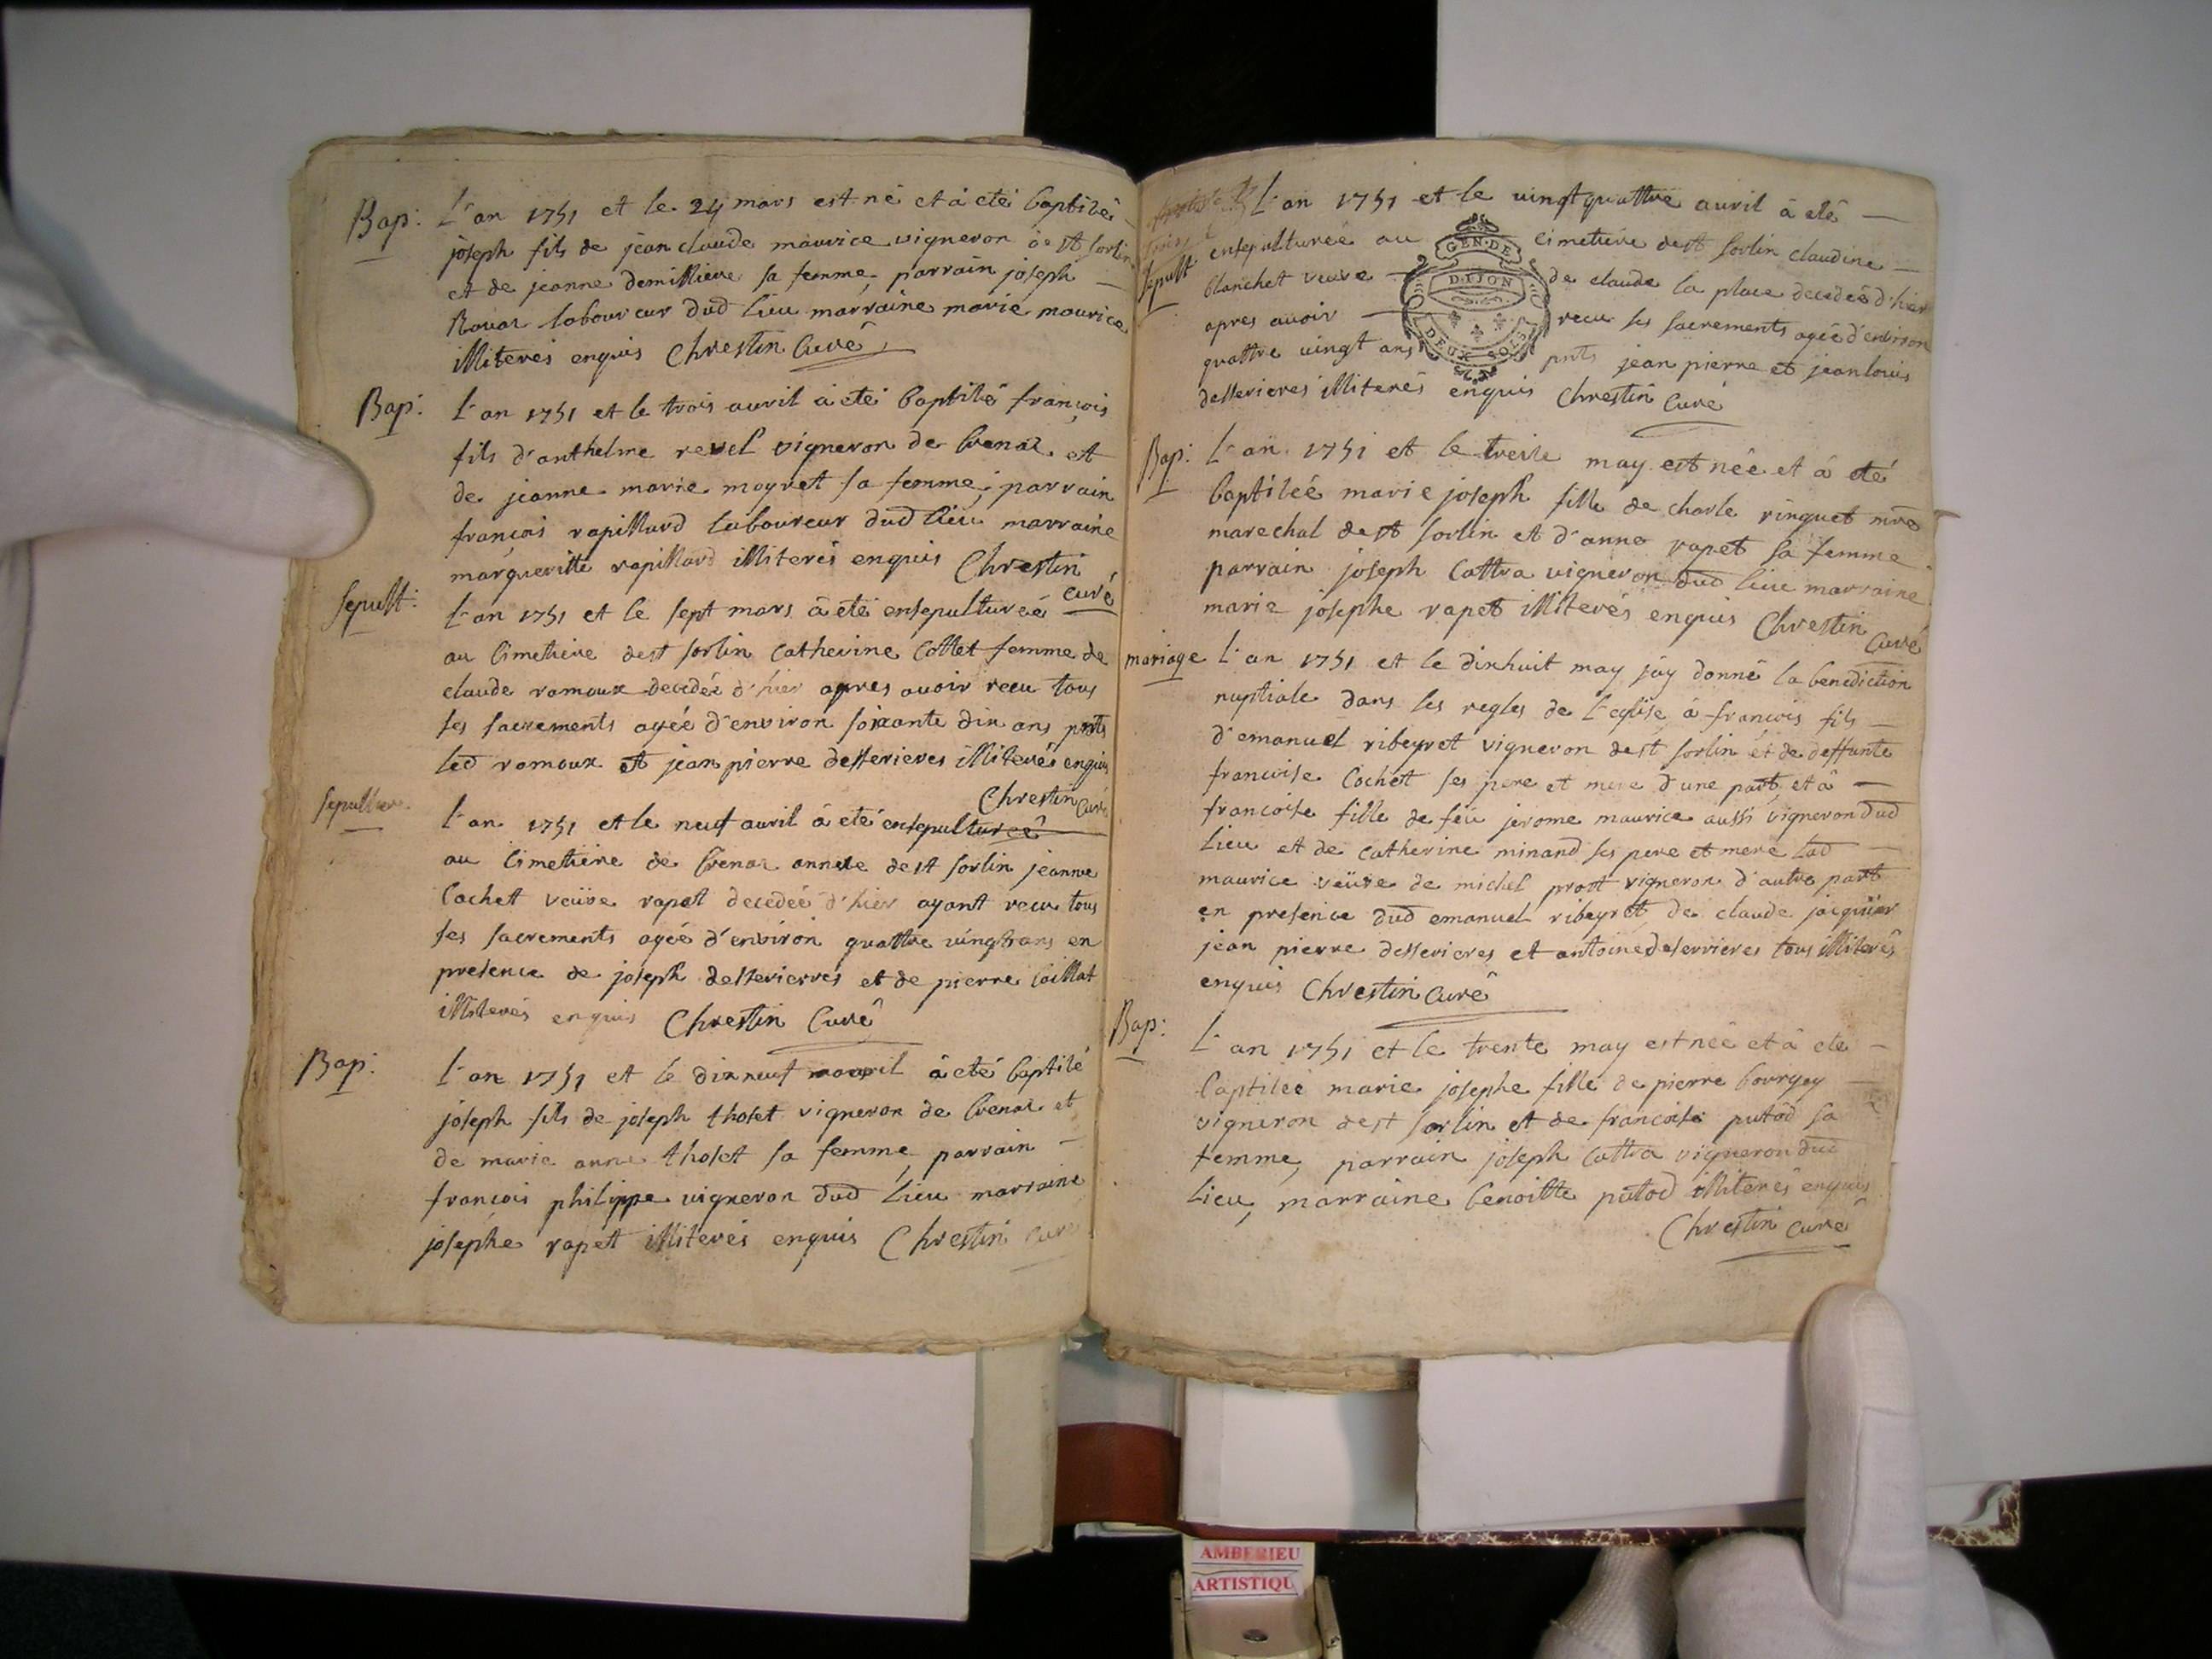 Bap: L'an 1751 et le 24 mars est né et à eté baptisé
joseph fils de jean claude maurice vigneron de st sorlin
et de jeanne demilliere sa femme, parrain joseph
laboureur dud lieu marraine marie maurice
illiterés enquis Chrestin Curé
Bap: L'an 1751 et le trois avril à eté baptisé françois
fils d'anthelme revel vigneron de benar et
de jeanne marie moyret sa femme, parrain
françois rapillard laboureur dud lieu marraine
margueritte rapillard illiterés enquis Chrestin
curé
sepult: L'an 1751 et le sept mars à eté ensepulturée
au cimetiere dest sorlin catherine collet femme de
claude ramoux decedée d'hier apres avoir recu tous
ses sacrements agée d'environ soixante dix ans pnts
led ramoux et jean pierre desserieres illiterés enquis
Chrestin Curé
sepulture L'an 1751 et le neuf avril à eté ensepulturée
au cimetiere de benar annexe dest sorlin jeanne
Cochet veüve rapet decedée d'hier ayant recu tous
ses sacrements agée d'environ quattre vingt ans en
presence de joseph desserierres et de pierre caillat
illiterés enquis Chrestin Curé
Bap: L'an 1751 et le dixneuf avril à eté baptisé
joseph fils de joseph tholet vigneron de benar et
de marie anne tholet sa femme, parrain
françois philippe vigneron dud lieu marraine
josephe rapet illiterés enquis Chrestin curé
L'an 1751 et le vingt quattre avril à eté
sepult ensepulturée au cimetiere dest sorlin claudine
GEN·DE
DIJON
DEUX SOLS
blanchet veuve de claude la place decedée d'hier
apres avoir recu ses sacrements agée d'environ
quattre vingt ans pnts jean pierre et jean louis
desserieres illiterés enquis Chrestin Curé
Bap: L'an 1751 et le treise may est née et à eté
baptisée marie joseph fille de charle ringuet mre
marechal dest sorlin et d'anne rapet sa femme
parrain joseph Cattra vigneron dud lieu marraine
marie josephe rapet illiterés enquis Chrestin
Curé
mariage L'an 1751 et le dixhuit may j'ay donné la benediction
nuptiale dans les regles de l'eglise à françois fils
d'emanuel ribeyret vigneron dest sorlin et de deffunte
francoise Cochet ses pere et mere d'une part, et à
francoise fille de feu jerome maurice aussi vigneron dud
lieu et de catherine minand ses pere et mere lad
maurice veüve de michel prost vigneron d'autre part
en presence dud emanuel ribeyret, de claude jacquier
jean pierre desserieres et antoine deserrieres tous illiterés
enquis Chrestin Curé
Bap: L'an 1751 et le trente may est née et à eté
baptisée marie josephe fille de pierre bourgey
vigneron dest sorlin et de francoise putod sa
femme, parrain joseph Cattra vigneron dud
lieu, marraine benoitte putod illiterés enquis
Chrestin curé
AMBERIEU
ARTISTIQU